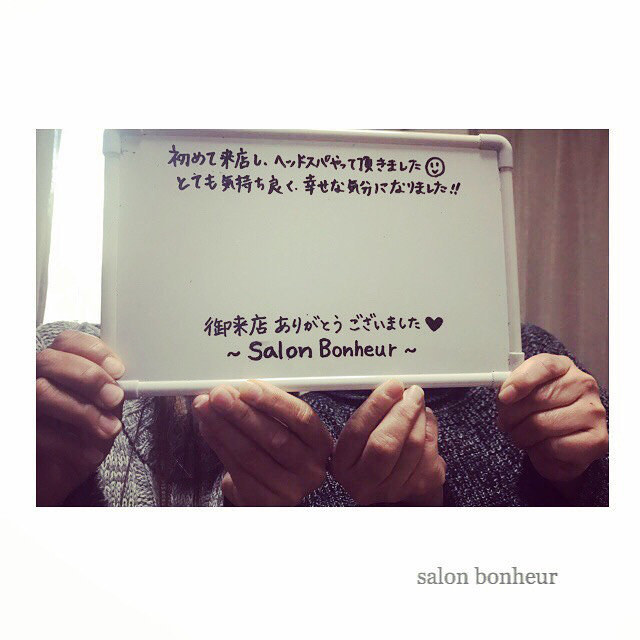 初めて来店し、ヘッドスパやって頂きました☺
とても気持ち良く、幸せな気分になりました!!
御来店 ありがとうございました♥
~ Salon Bonheur ~
salon bonheur